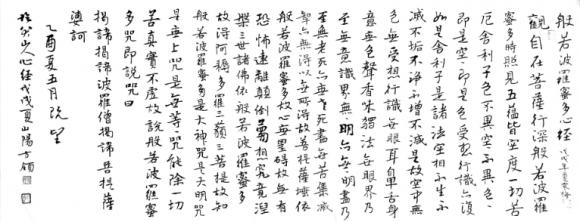 般若波羅蜜多心經
觀自在菩薩行深般若波羅
蜜多時照見五蘊皆空度一切苦
厄舍利子色不異空空不異色
即是空空即是色受想行識亦復
如是舍利子是諸法空相不生不
滅不垢不淨不增不減是故空中無
色無受想行識無眼耳鼻舌身
意無色聲香味觸法無眼界乃
至無意識界無無明亦無無明盡乃
至無老死亦無老死盡無苦集滅
道無智亦無得以無所得故菩提薩埵依
般若波羅蜜多故心無罣礙故無有
恐怖遠離顛倒夢想究竟涅
槃三世諸佛依般若波羅蜜多
故得阿耨多羅三藐三菩提故知
般若波羅蜜多是大神咒是大明咒
是無上咒是無等等咒能除一切
苦真實不虛故說般若波羅蜜
多咒即說咒曰
揭諦揭諦波羅僧揭諦菩提薩
婆訶
乙酉夏五月既望
山人心經戊戌夏山陽